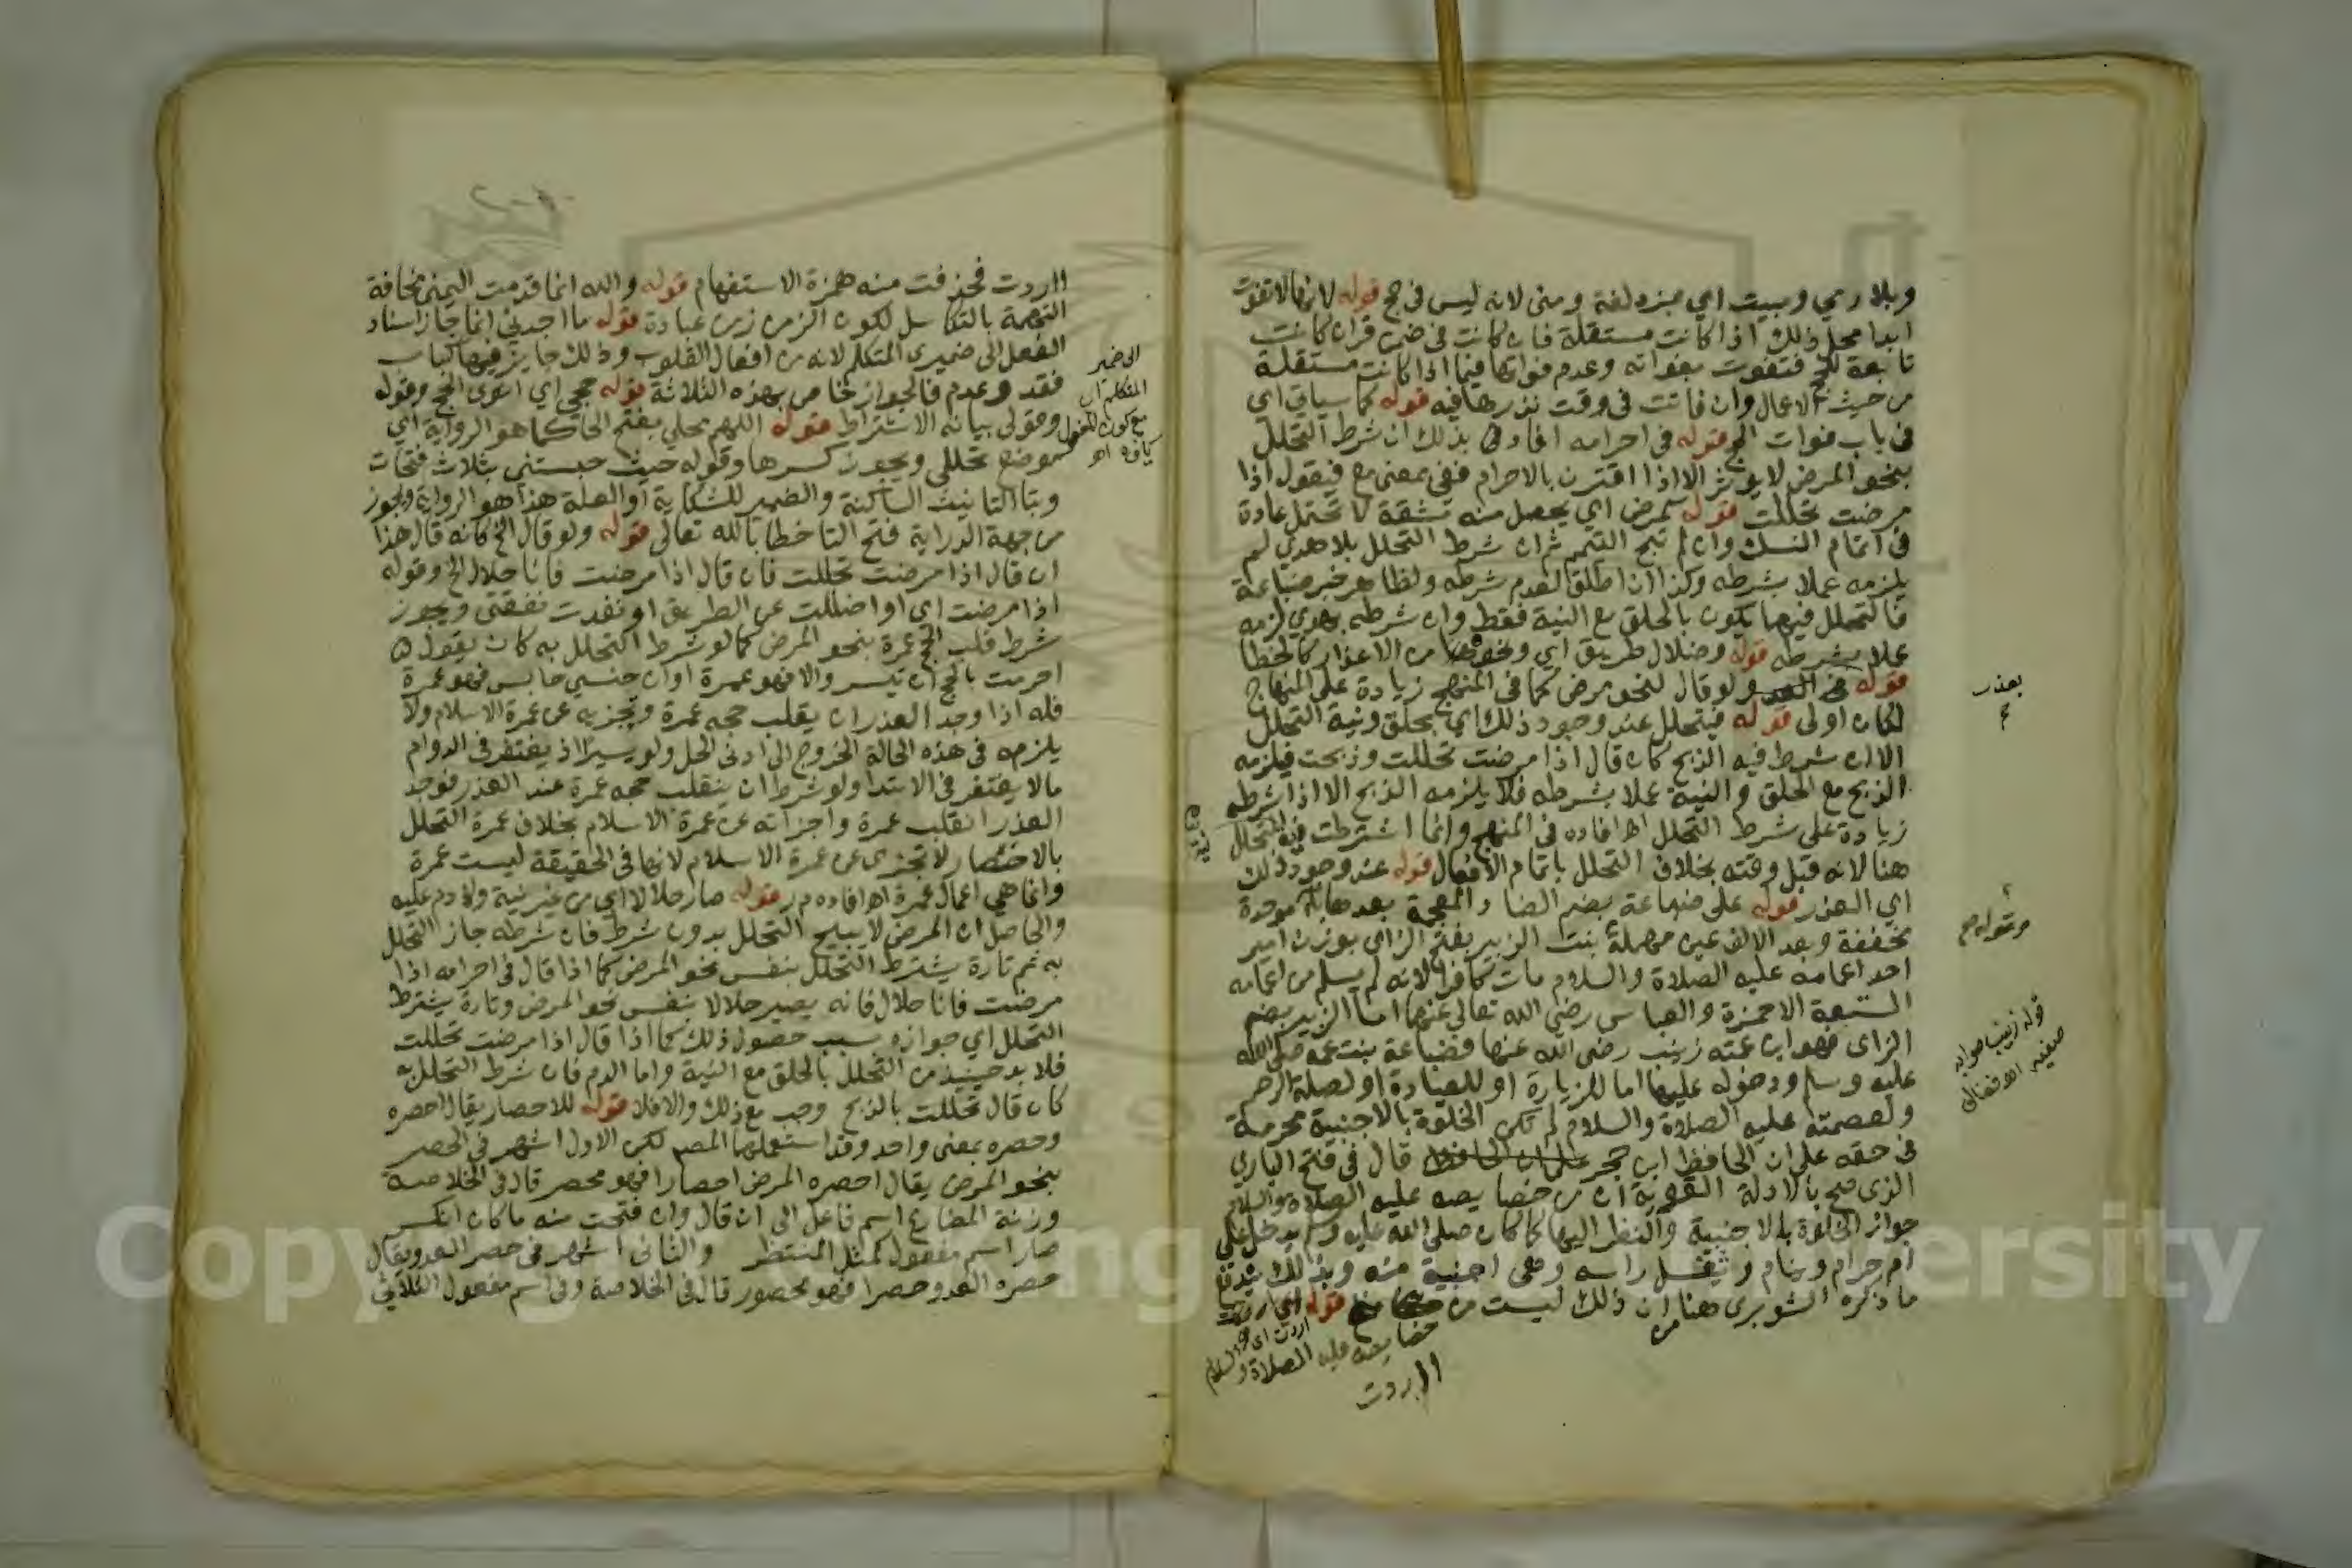 وبلا رمي ومبيت اي بمزدلفة ومنى لانه ليس في حج قوله لانها لا تفوت
ابدا محل ذلك اذا كانت مستقلة فان كانت في ضمن قران كانت
تابعة للحج فتفوت بفواته وعدم فواتها فيما اذا كانت مستقلة
من حيث الاعمال وان فاتت في وقت نذرها فيه قوله كما سياتي اي
في باب فوات الحج قوله في احرامه افاد بذلك ان شرط التحلل
بنحو المرض لا يوثر الا اذا اقترن بالاحرام ففي بمعنى مع فيقول اذا
مرضت تحللت قوله كمرض اي يحصل منه مشقة لا تحتمل عادة
في اتمام النسك وان لم تبح التيمم ثم ان شرط التحلل بلا هدي لم
يلزمه عملا بشرطه وكذا ان اطلق لعدم شرطه ولظاهر خبر ضباعة
فالتحلل فيهما يكون بالحلق مع النية فقط وان شرطه بهدي لزمه
عملا بشرطه قوله وضلال طريق اي ونحوهما من الاعذار كالخطا
قوله ولو قال لنحو مرض كما في المنهج زيادة على المنهاج
لكان اولى قوله فيتحلل عند وجود ذلك اي بحلق ونية التحلل
الا ان شرط فيه الذبح كان قال اذا مرضت تحللت وذبحت فيلزمه
الذبح مع الحلق والنية عملا بشرطه فلا يلزمه الذبح الا اذا شرطه
زيادة على شرط التحلل اهـ افاده في المنهج وانما اشترطت نية التحلل
هنا لانه قبل وقته بخلاف التحلل باتمام الافعال قوله عند وجود ذلك
اي العذر قوله على ضباعة بضم الضا والمعجمة بعدها باء موحدة
مخففة وبعد الالف عين مهملة بنت الزبير بفتح الزاي بوزن امير
احد اعمامه عليه الصلاة والسلام مات كافرا لانه لم يسلم من اعمامه
التسعة الا حمزة والعباس رضي الله تعالى عنهما اما الزبير بضم
الزاي فهو ابن عمته زينب رضي الله عنها فضباعة بنت عمه صلى الله
عليه وسلم ودخوله عليها اما للزيارة او للعيادة او لصلة الرحم
ولعصمته عليه الصلاة والسلام لم تكن الخلوة بالاجنبية محرمة
في حقه على ان الحافظ ابن حجر قال في فتح الباري
الذي صح بالادلة القوية ان من خصايصه عليه الصلاة والسلام
جواز الخلوة بالاجنبية والنظر اليها كما كان صلى الله عليه وسلم يدخل على
ام حرام وينام وتفل راسه وهي اجنبية منه وبذلك يندفع
ما ذكره الشوبري هنا من ان ذلك ليست من
خصايصه عليه الصلاة والسلام
ااردت
بعذر
وقوله
قوله زينب صوابه
صفية
ااردت فحذفت منه همزة الاستفهام قوله والله انما قدمت اليمين مخافة
التهمة بالتكاسل لكون الزمن زمن عبادة قوله ما اجدني انما جاز اسناد
الفعل الى ضميري المتكلم لانه من افعال القلوب وذلك جايز فيها كباب
فقد وعدم فالجواز خاص بهذه الثلاثة قوله حجي اي انوي الحج وقوله
وقولي بيانه الاشتراط قوله اللهم محلي بفتح الحا كما هو الرواية اي
موضع تحللي ويجوز كسرها وقوله حيث حبستني بثلاث فتحات
وبتا التانيث الساكنة والضمير للشكاية او العلة هذا هو الرواية ويجوز
من جهة الدراية فتح التا خطابا لله تعالى قوله ولو قال الخ كانه قال هذا
ان قال اذا مرضت تحللت فان قال اذا مرضت فانا حلال الخ وقوله
اذا مرضت اي او اضللت عن الطريق او نفدت نفقتي ويجوز
شرط قلب الحج عمرة بنحو المرض كما لو شرط التحلل به كان يقول
احرمت بالحج ان تيسر والا فهو عمرة او ان حبسني حابس فهو عمرة
فله اذا وجد العذر ان يقلب حجه عمرة وتجزيه عن عمرة الاسلام ولا
يلزمه في هذه الحالة الخروج الى ادنى الحل ولو يسيرا اذ يغتفر في الدوام
مالا يغتفر في الابتدا ولو شرط ان ينقلب حجه عمرة عند العذر فوجد
العذر انقلب عمرة واجزاته عن عمرة الاسلام بخلاف عمرة التحلل
بالاحصار لا تجزي عن عمرة الاسلام لانها في الحقيقة ليست عمرة
وانما هي اعمال عمرة اهـ افاده م ر قوله صار حلالا اي من غير نية ولا دم عليه
والحاصل ان المرض لا يبيح التحلل بدون شرط فان شرطه جاز التحلل
به ثم تارة يشترط التحلل بنفس نحو المرض كما اذا قال في احرامه اذا
مرضت فانا حلال فانه يصير حلالا بنفس نحو المرض وتارة يشترط
التحلل اي جوازه بسبب حصول ذلك كما اذا قال اذا مرضت تحللت
فلا بد حينيذ من التحلل بالحلق مع النية واما الدم فان شرط التحلل به
كان قال تحللت بالذبح وجب مع ذلك والا فلا قوله للاحصار يقال احصره
وحصره بمعنى واحد وقد استعملهما المصـ لكن الاول اشهر في الحصر
بنحو المرض يقال احصره المرض احصارا فهو محصر قال في الخلاصة
وزنة المضارع اسم فاعل الى ان قال وان فتحت منه ما كان انكسر
صار اسم مفعول كمثل المنتظر والثاني اشهر في حصر العدو يقال
حصره العدو حصرا فهو محصور قال في الخلاصة وفي اسم مفعول الثلاثي
الى ضمير
المتكلم اي
مع كون المفعول
Copyright © King University